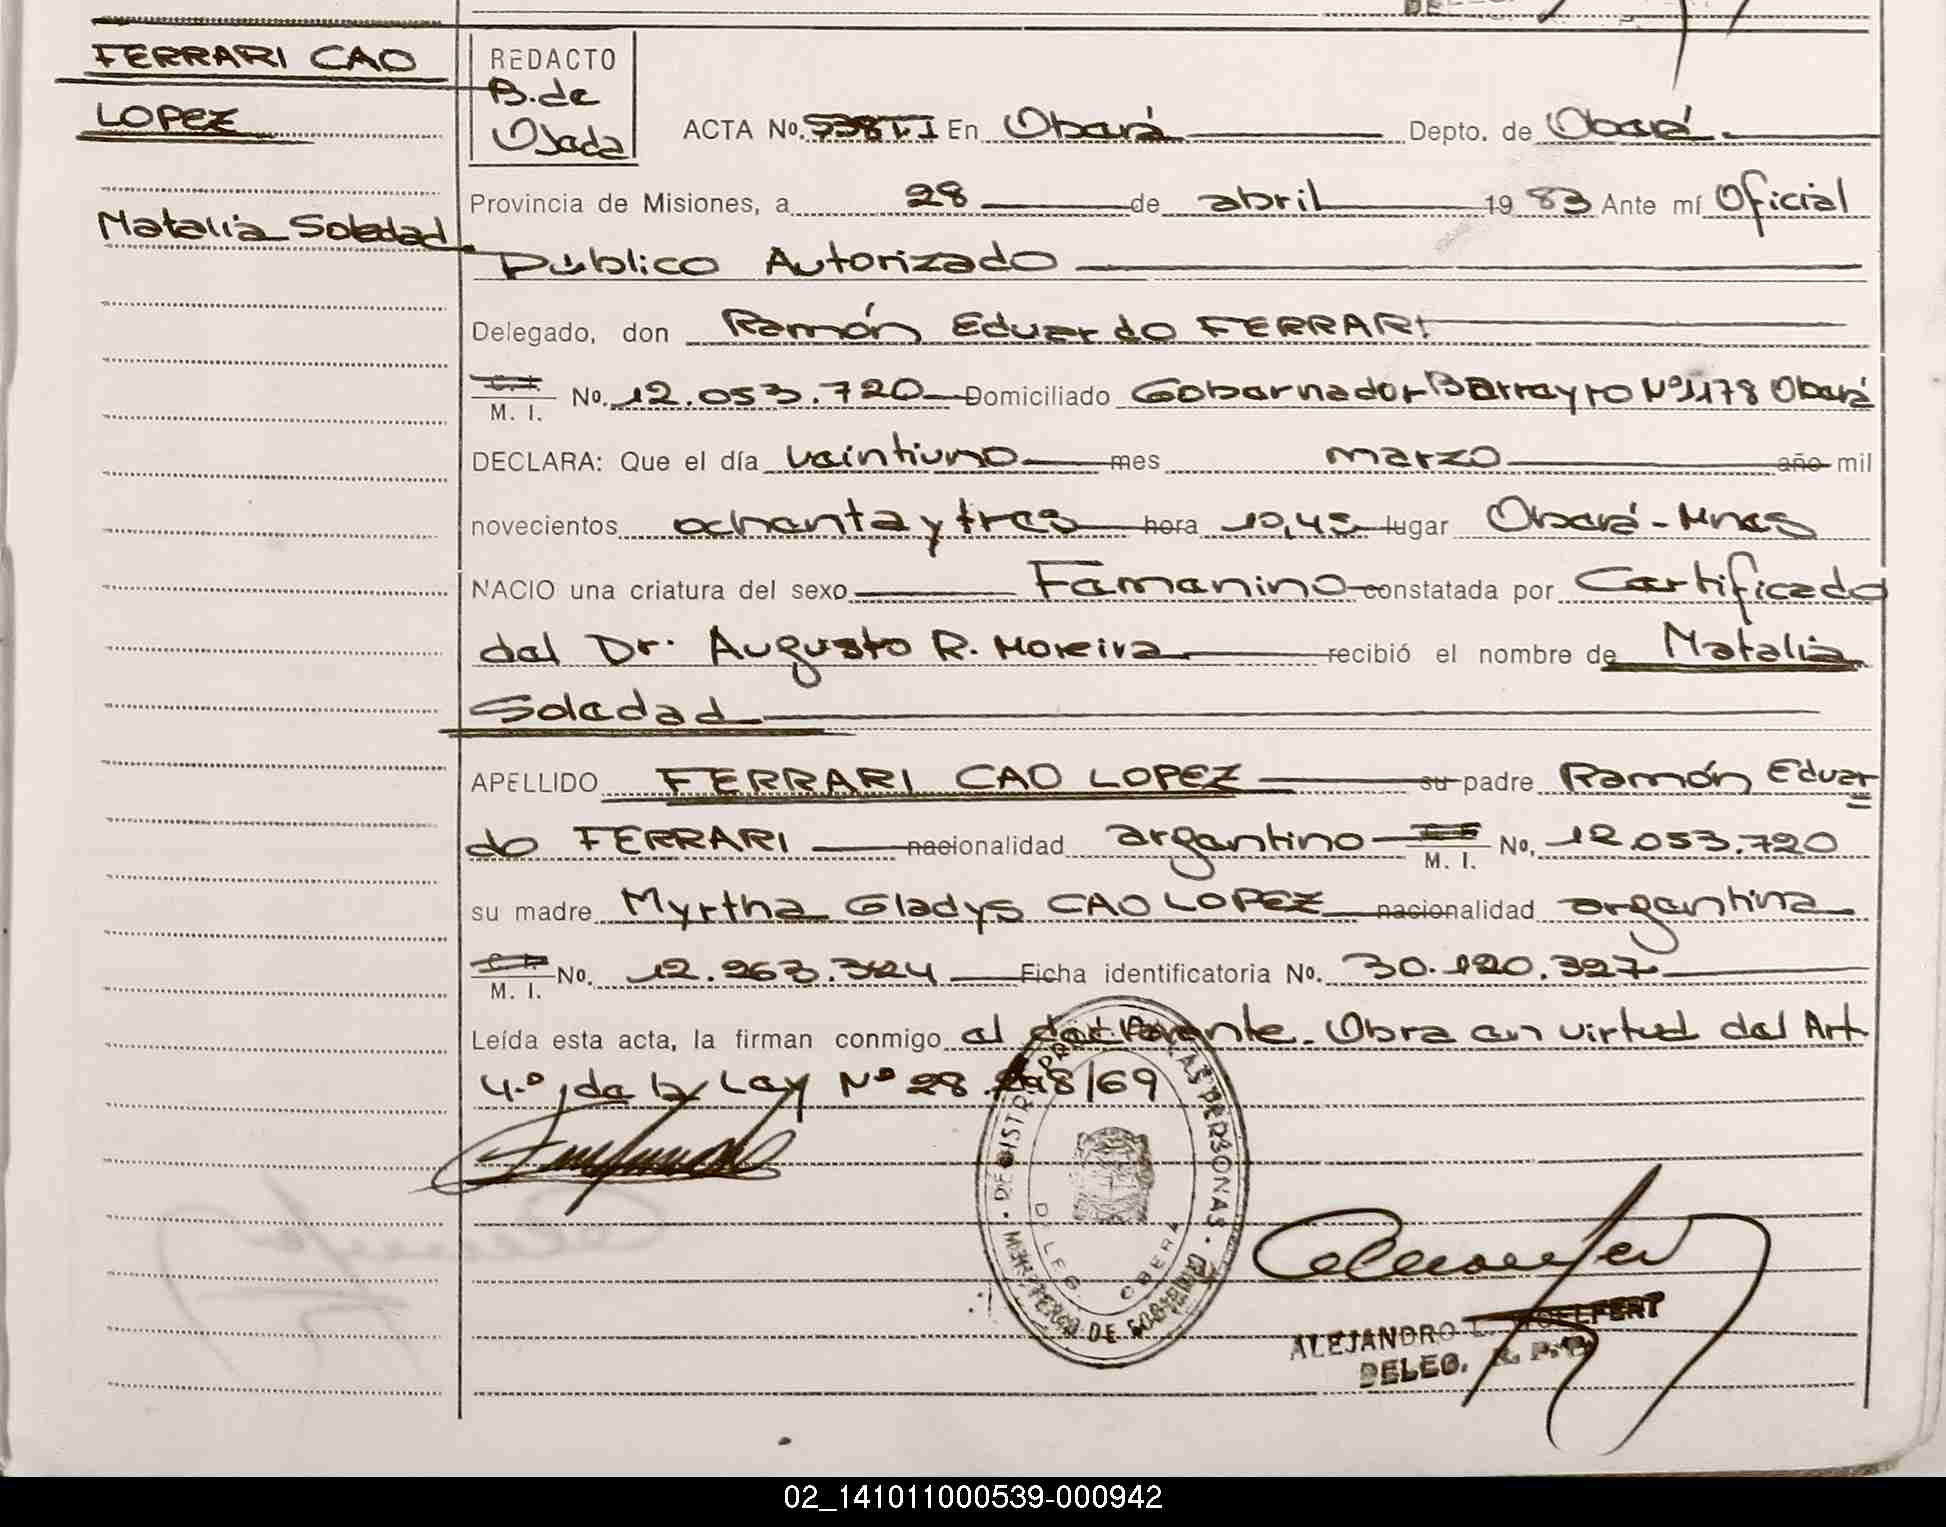 FERRARI CAO
LOPEZ
Natalia Soledad
REDACTO
B. de
Ojeda
ACTA No. 538 T.I En Oberá Depto. de Oberá
Provincia de Misiones, a 28 de abril 1983 Ante mí Oficial
Público Autorizado
Delegado, don Ramón Eduardo FERRARI
C. I. M. I. No. 12.053.720 Domiciliado Gobernador Barreyro Nº 1178 Oberá
DECLARA: Que el día veintiuno mes marzo año mil
novecientos ochenta y tres hora 10,45 lugar Oberá - Mnes
NACIO una criatura del sexo Femenino constatada por Certificado
del Dr. Augusto R. Moreira recibió el nombre de Natalia
Soledad
APELLIDO FERRARI CAO LOPEZ su padre Ramón Eduar
do FERRARI nacionalidad argentino M. I. No. 12.053.720
su madre Myrtha Gladys CAO LOPEZ nacionalidad argentina
M. I. No. 12.263.324 Ficha identificatoria No. 30.120.327
Leída esta acta, la firman conmigo el declarante. Obra en virtud del Art
4.º, de la Ley Nº 28. /69
PERSONAS
DELEG. OBERA
MINISTERIO DE GOBIERNO
ALEJANDRO
DELEG. R. P.
02_141011000539-000942